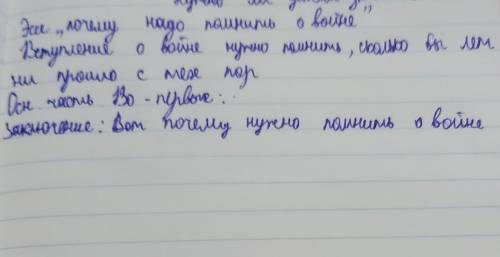 нужно ли
Эссе „почему надо помнить о войне"
Вступление о войне нужно помнить, сколько бы лет
ни прошло с тех пор
Осн часть Во-первых:
Заключение: Вот почему нужно помнить о войне